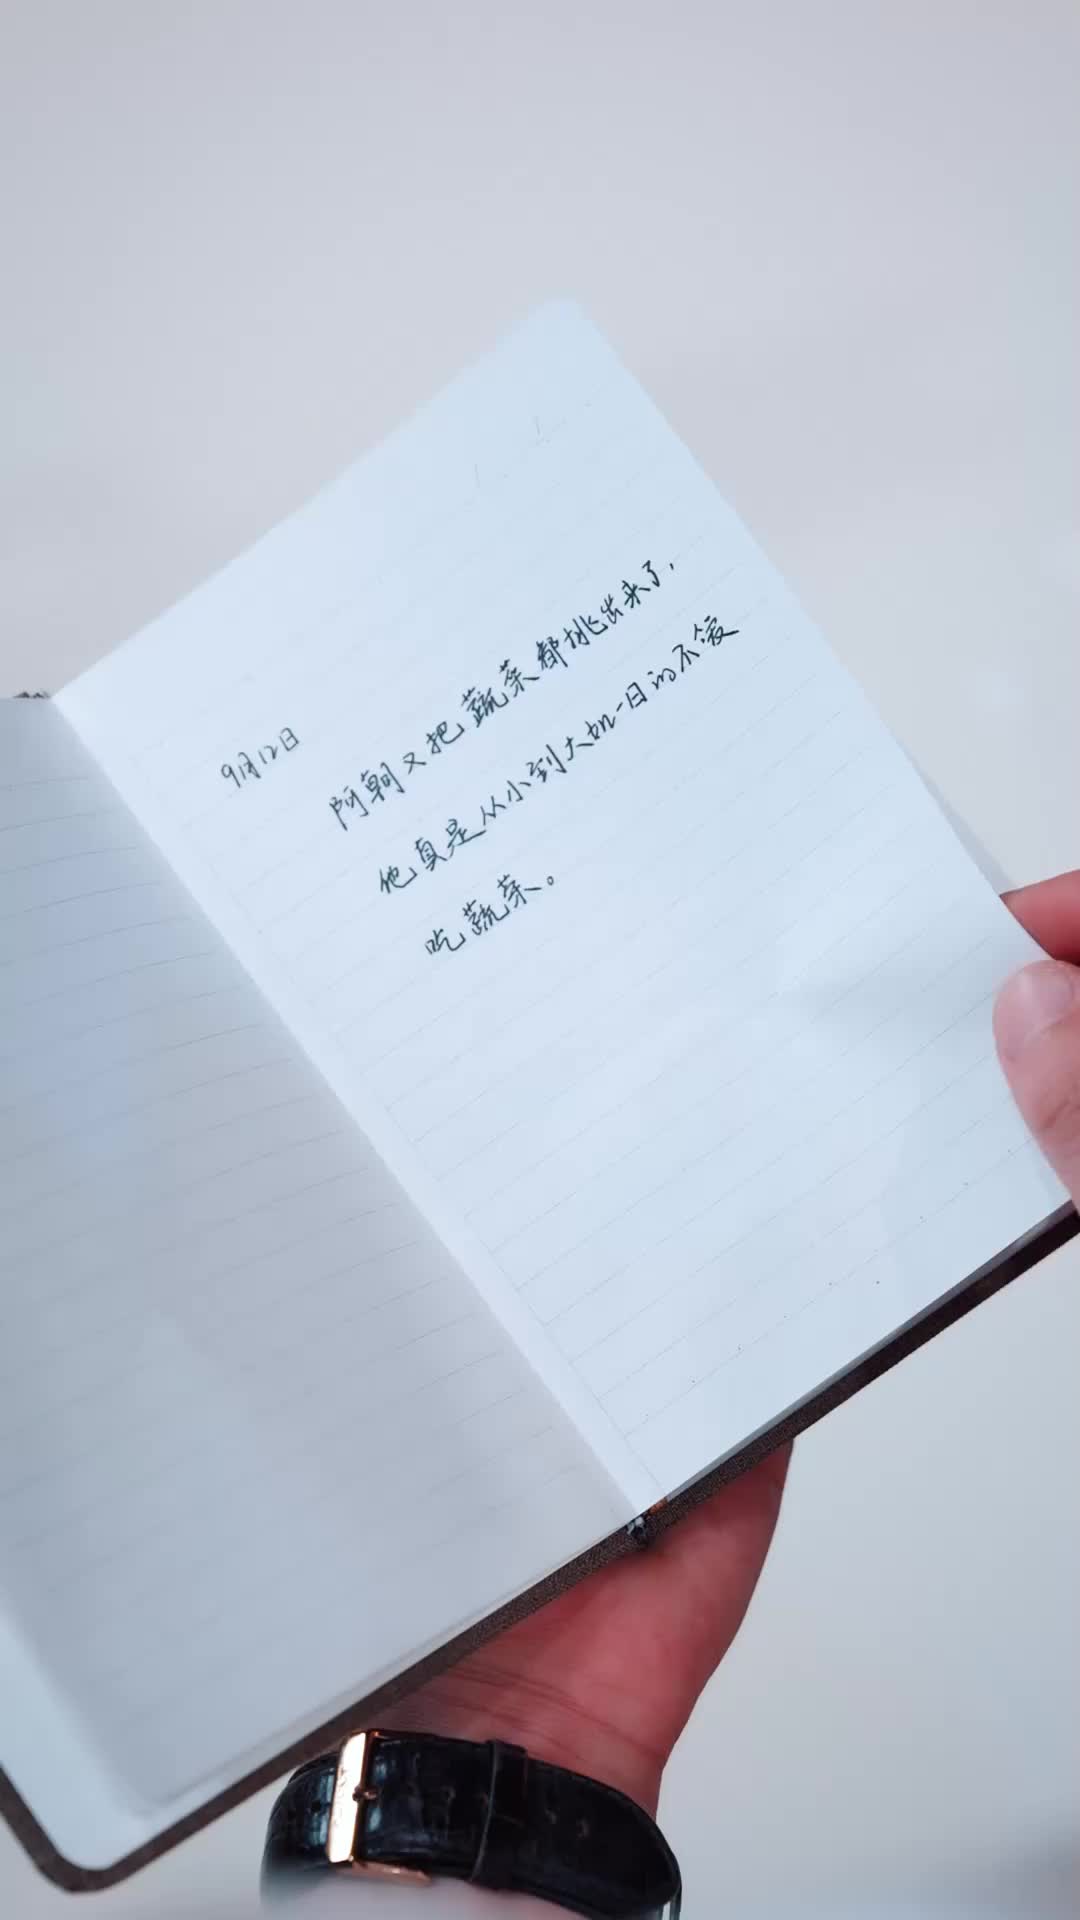 9月12日
阿朝又把蔬菜都挑出来了,
他真是从小到大如一日的不爱
吃蔬菜。